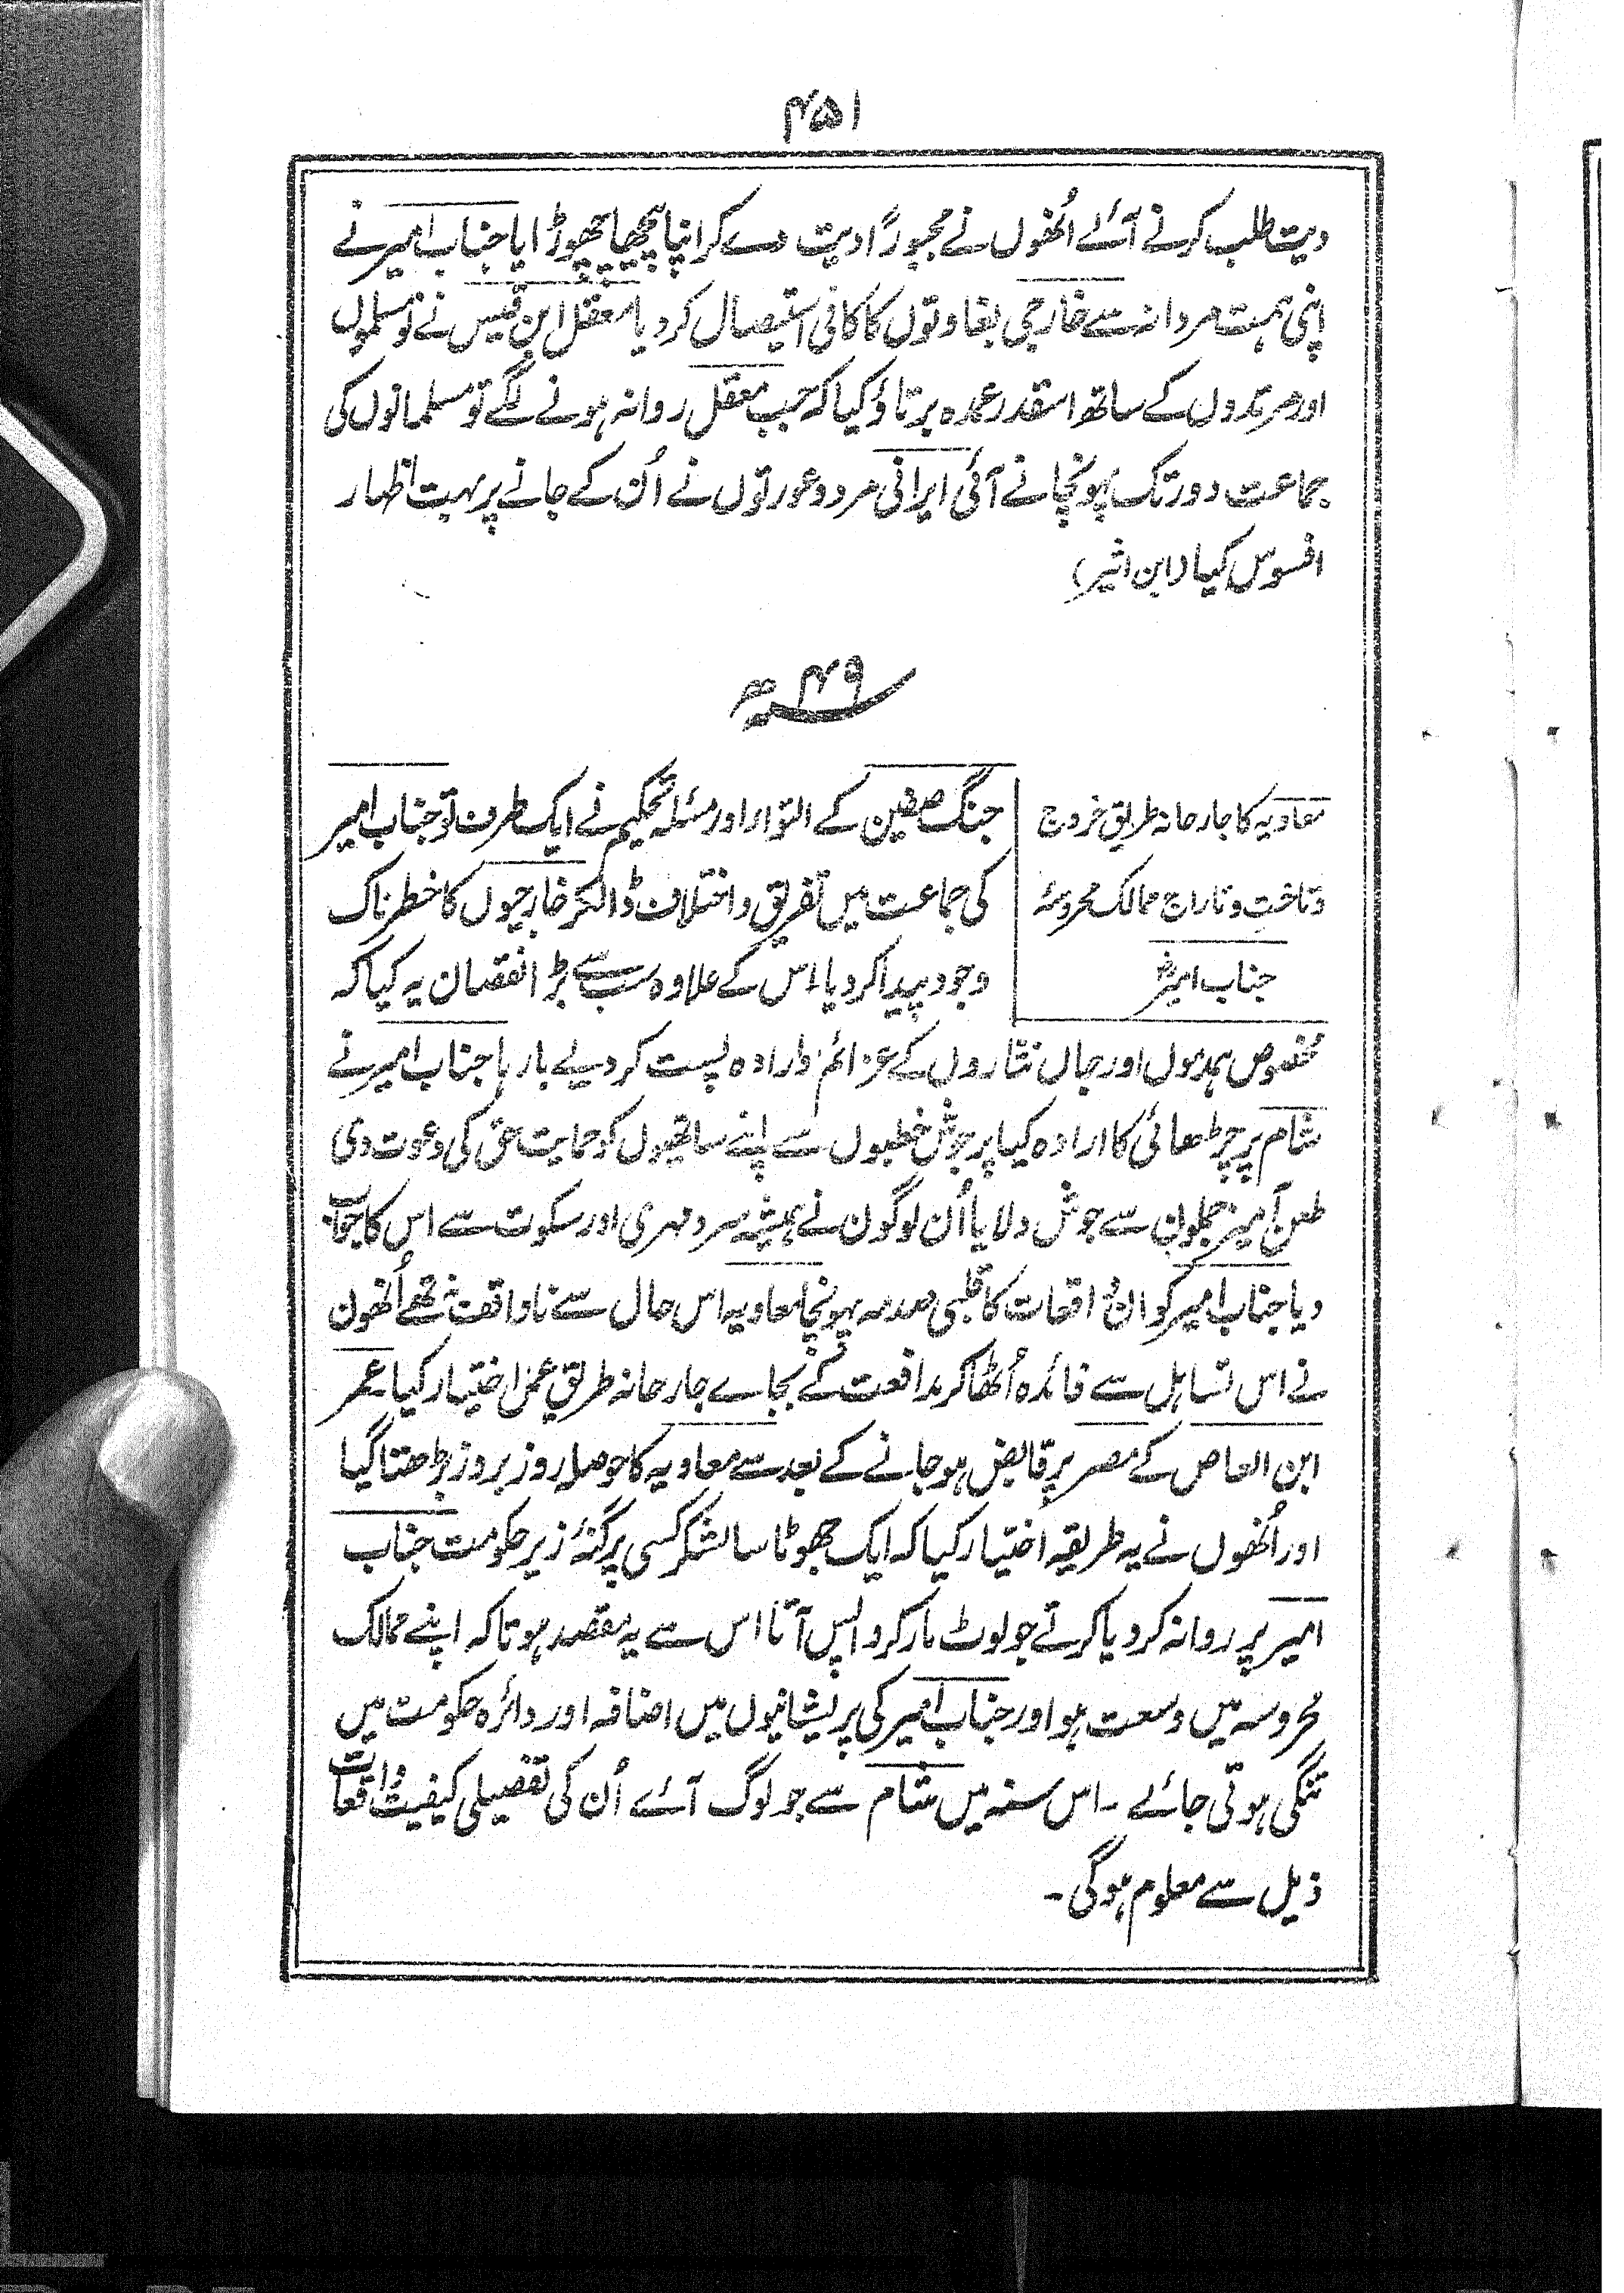 ۴۵۱
دیت طلب کرنے آئے اُنھوں نے مجبوراً دیت دے کر اپنا پیچھا چھوڑایا جناب امیر نے
اپنی ہمت مردانہ سے خارجی بغاوتوں کا کافی استیصال کر دیا معقل ابن قیس نے نو مسلموں
اور مرتدوں کے ساتھ اسقدر عمدہ برتاؤ کیا کہ جب معقل روانہ ہونے لگے تو مسلمانوں کی
جماعت دور تک پہونچانے آئی ایرانی مرد و عورتوں نے اُن کے جانے پر بہت اظہار
افسوس کیا (ابن اثیر)
سنہ ۴۹ ھ
معاویہ کا جارحانہ طریق خروج
و تاخت و تاراج ممالک محروسہ
جناب امیرؓ
جنگ صفین کے التواء اور مسئلہ تحکیم نے ایک طرف تو جناب امیر
کی جماعت میں تفریق و اختلاف ڈالکر خارجیوں کا خطرناک
وجود پیدا کر دیا اس کے علاوہ سب سے بڑا نقصان یہ کیا کہ
مخصوص ہمدموں اور جاں نثاروں کے عزائم و ارادہ پست کر دیے بارہا جناب امیر نے
شام پر چڑھائی کا ارادہ کیا پر جوش خطبوں سے اپنے ساتھیوں کو حمایت حق کی دعوت دی
طعن آمیز جملوں سے جوش دلایا اُن لوگوں نے ہمیشہ سرد مہری اور سکوت سے اس کا جواب
دیا جناب امیر کو ان واقعات کا قلبی صدمہ پہونچا معاویہ اس حال سے ناواقف نہ تھے اُنھوں
نے اس تساہل سے فائدہ اُٹھا کر مدافعت کے بجاے جارحانہ طریق عمل اختیار کیا۔ عمر
ابن العاص کے مصر پر قابض ہو جانے کے بعد سے معاویہ کا حوصلہ روز بروز بڑھتا گیا
اور اُنھوں نے یہ طریقہ اختیار کیا کہ ایک چھوٹا سا لشکر کسی پرگنۂ زیر حکومت جناب
امیر پر روانہ کر دیا کرتے جو لوٹ مار کر واپس آتا اس سے یہ مقصد ہوتا کہ اپنے ممالک
محروسہ میں وسعت ہو اور جناب امیر کی پریشانیوں میں اضافہ اور دائرہ حکومت میں
تنگی ہوتی جائے ۔ اس سنہ میں شام سے جو لوگ آئے اُن کی تفصیلی کیفیت واقعات
ذیل سے معلوم ہوگی ۔